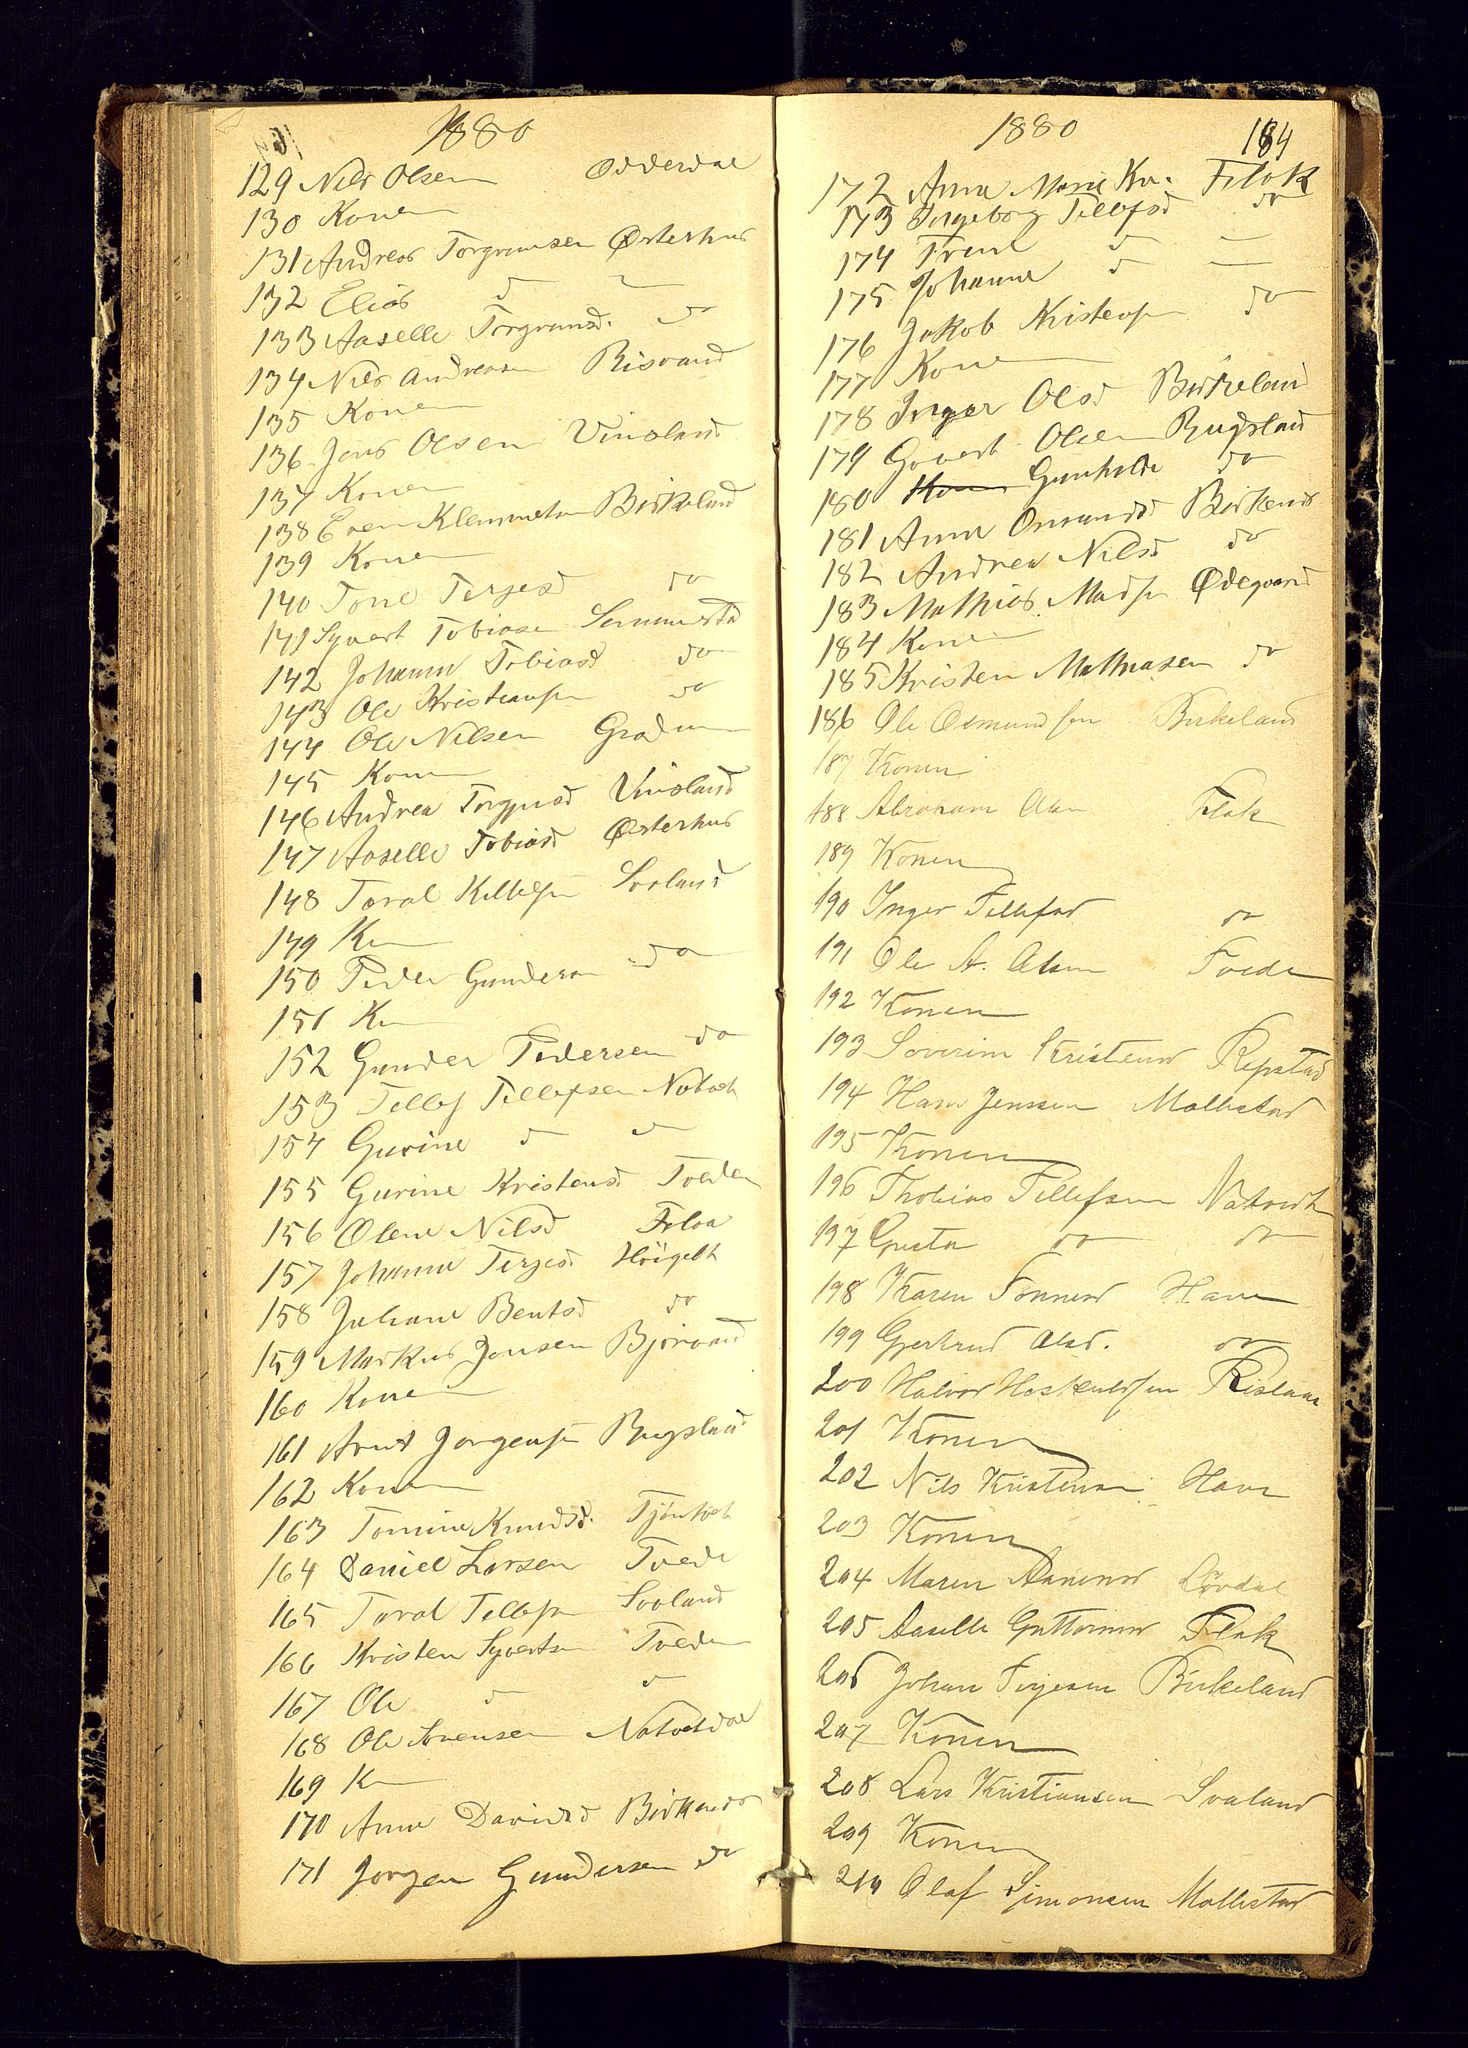 1880
129 Nils Olsen Odderdal
130 Konen
131 Andreas Torgrimsen Østerhus
132 Elias d
133 Aaselle Torgrimsd. do
134 Nils Andreasen Risvand
135 Konen
136 Jens Olsen Vinsland
137 Konen
138 Even Klemmetsen Birkeland
139 Konen
140 Tone Terjesd do
141 Syvert Tobiasen
142 Johanne Tobiasd do
143 Ole Kristiansen do
144 Ole Nilsen
145 Konen
146 Andrea Vinsland
147 Aaselle Tobiasd Østerhus
148 Taral Kittelsen Svaland
149 Kn
150 Peder Gundersen do
151 Kn
152 Gunder Pedersen do
153 Tellef Tellefsen
154 Gurine d d
155 Gurine Kristensd Tveden
156 Olene Nilsd
157 Johanne Terjesd
158 Juliane Bentsd do
159 Markus Jensen Bjorvand
160 Konen
161 Arnt Jorgensen Bugsland
162 Konen
163 Tomine Knudsd.
164 Daniel Larsen Tvede
165 Taral Tellefsen Svaland
166 Kristen Syvertsen Tveden
167 Ole d d
168 Ole Natvetdal
169 Kn
170 Anne Davidsd Birkenes
171 Jorgen Gundersen do
1880 184
172 Anne Marie Flak
173 Ingeborg Tellefsd do
174 d
175 Johanne d
176 Jakob Kristensen do
177 Kone
178 Inger Olsd Birkeland
179 Olsen Bugsland
180 Gunhilde do
181 Anne Osmundsd Birkenes
182 Andrea Nilsd do
183 Mathias Madsen Ødegaard
184 Konen
185 Kristen Mathiasen do
186 Ole Osmundsen Birkeland
187 Konen
188 Abraham Olsen Flak
189 Konen
190 Inger Tellefsd do
191 Ole A. Olsen Tvede
192 Konen
193 Severine Kristensd Repstad
194 Hans Jenssen Mollestad
195 Konen
196 Thobias Tellefsen Natvedt
197 do do
198 Karen Tonnesd Have
199 Gjertrud Olsd. do
200 Halvor Risland
201 Konen
202 Nils Kristensen Have
203 Konen
204 Maren Aanensd Lövdal
205 Aaselle Guttormsd Flak
206 Johan Terjesen Birkeland
207 Konen
208 Lars Kristiansen Svaland
209 Konen
210 Olaf Simonsen Mollestad